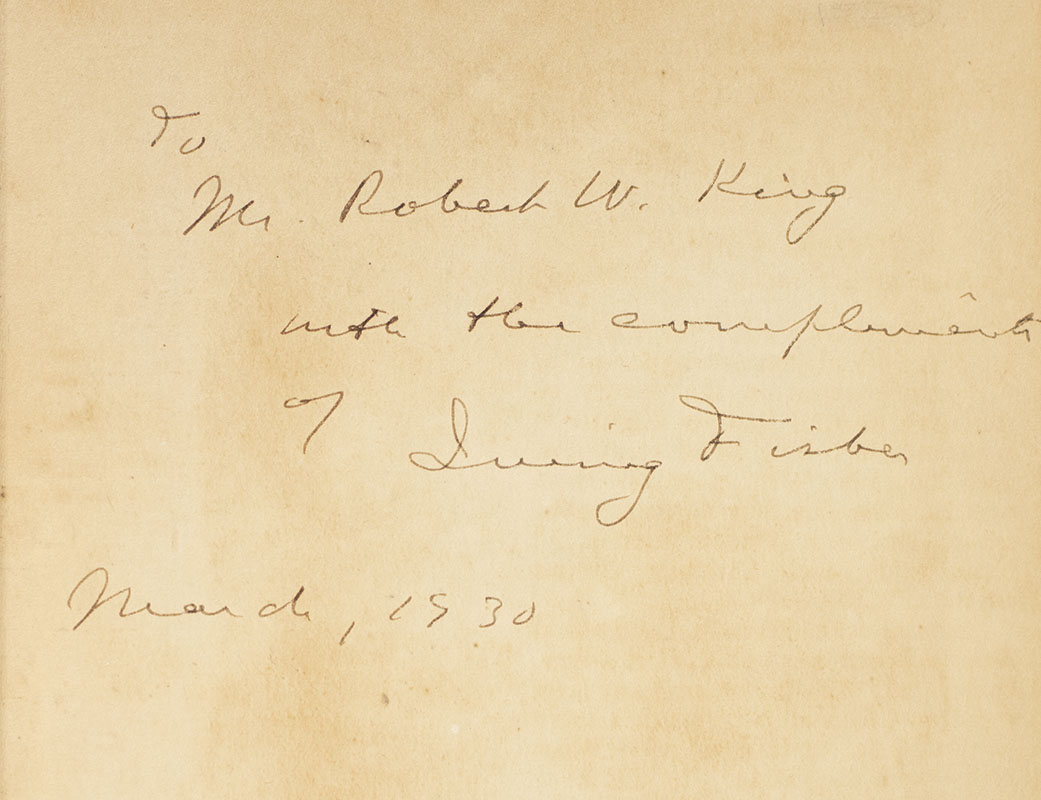 To
Mr. Robert W. King
with the compliments
of Irving Fisher
March, 1930